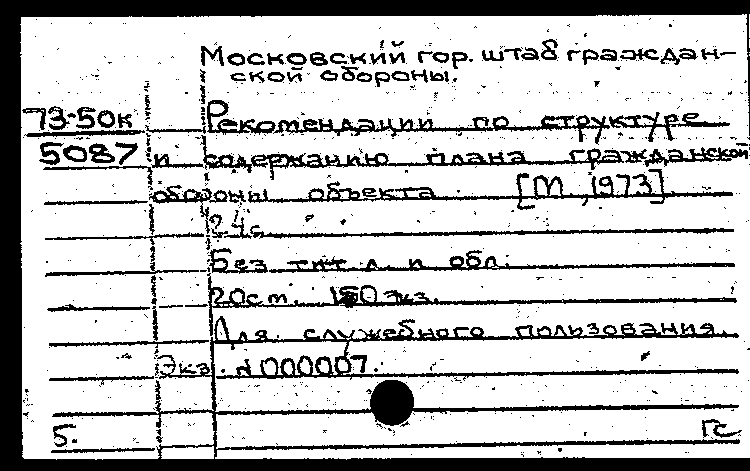 Московский гор. штаб граждан-
ской обороны.
73-50к Рекомендации по структуре
5087 и содержанию плана гражданской
обороны объекта [М, 1973].
24с.
Без тит. л. и обл.
20см. экз.
Для служебного пользования.
Экз. № 000007.
5. ГС